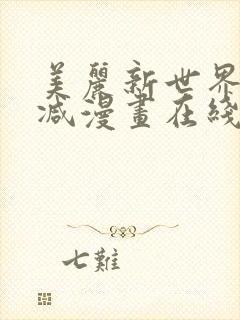 美麗新世界
减漫畫在綫
七難